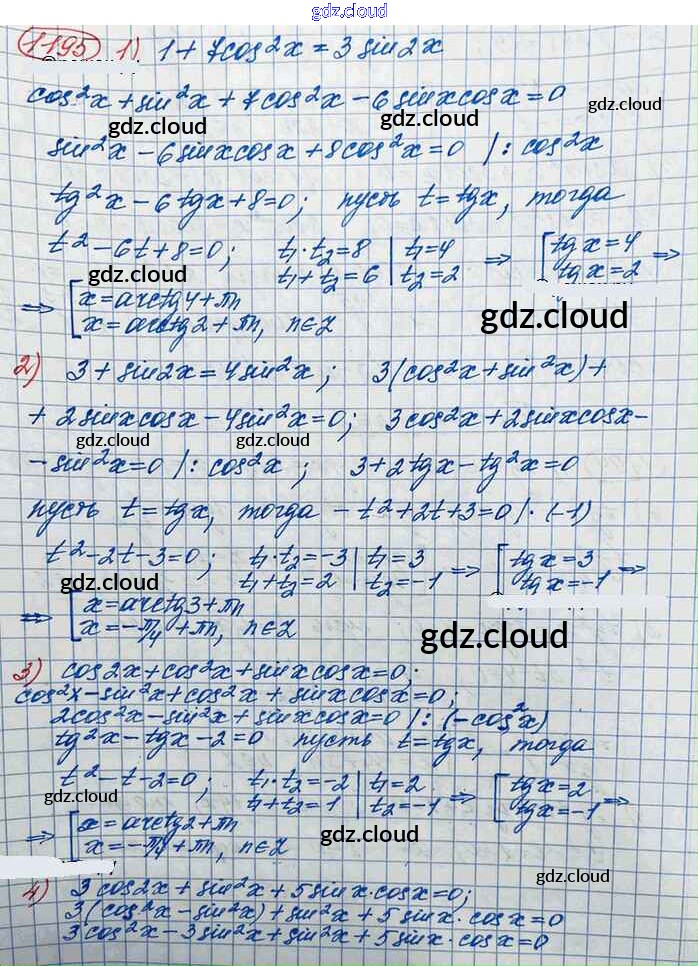 gdz.cloud
1195 1) 1 + 7cos²x = 3 sin2x
cos²x + sin²x + 7cos²x - 6 sinx cosx = 0
gdz.cloud
gdz.cloud gdz.cloud
sin²x - 6 sinx cosx + 8cos²x = 0 /: cos²x
tg²x - 6 tgx + 8 = 0; пусть t = tgx, тогда
t² - 6t + 8 = 0; t₁·t₂ = 8 | t₁ = 4 ⇒ [ tgx = 4 ⇒
t₁ + t₂ = 6 | t₂ = 2 [ tgx = 2
gdz.cloud gdz.cloud
⇒ [ x = arctg4 + πn
[ x = arctg2 + πn, n∈Z
gdz.cloud
2) 3 + sin2x = 4 sin²x; 3(cos²x + sin²x) +
+ 2 sinx cosx - 4 sin²x = 0; 3cos²x + 2 sinx cosx -
gdz.cloud gdz.cloud
- sin²x = 0 /: cos²x; 3 + 2 tgx - tg²x = 0
пусть t = tgx, тогда - t² + 2t + 3 = 0 /·(-1)
t² - 2t - 3 = 0; t₁·t₂ = -3 | t₁ = 3 ⇒ [ tgx = 3 ⇒
t₁ + t₂ = 2 | t₂ = -1 [ tgx = -1
gdz.cloud gdz.cloud
⇒ [ x = arctg3 + πn
[ x = -π/4 + πn, n∈Z
gdz.cloud
3) cos2x + cos²x + sinx cosx = 0;
cos²x - sin²x + cos²x + sinx cosx = 0;
2cos²x - sin²x + sinx cosx = 0 /: (-cos²x)
tg²x - tgx - 2 = 0 пусть t = tgx, тогда
t² - t - 2 = 0; t₁·t₂ = -2 | t₁ = 2 ⇒ [ tgx = 2 ⇒
t₁ + t₂ = 1 | t₂ = -1 [ tgx = -1
gdz.cloud
⇒ [ x = arctg2 + πn
[ x = -π/4 + πn, n∈Z
gdz.cloud
4) 3 cos2x + sin²x + 5 sinx · cosx = 0;
gdz.cloud
3(cos²x - sin²x) + sin²x + 5 sinx · cosx = 0
3 cos²x - 3 sin²x + sin²x + 5 sinx · cosx = 0